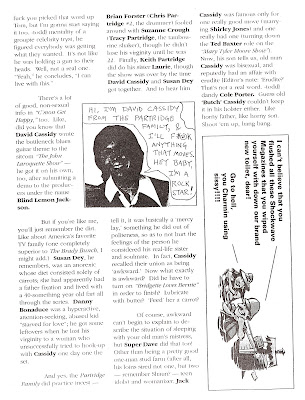 luck you picked that word up
Tom, but I'm gonna say saying
it too.
of a groupie
celebrity tryst, he
figured everybody was getting
what they wanted. It's not like
he was holding a gun to their
heads. Well, not a real one.
"Yeah," he concludes, "I can
live with this."
There's a lot
of good, non-sexual
info in "C'mon Get
Happy," too. Like,
did you know that
David Cassidy wrote
the bottleneck blues
guitar theme to the
sitcom "The Joker's
Turquoise Show"—
he got it on his own,
too, after submitting a
demo to the produc-
ers under the name
Blind Lemon Jack-
son.
But if you're like me,
you'll just remember the dirt.
Like about America's favorite
TV family (one completely
superior to The Brady Bunch, I
might add.) Susan Dey, he
remembers, was an anorexic
whose diet consisted solely of
carrots; she had apparently had
a father fixation and lived with
a 40-something year old fart all
through the series. Danny
Bonaduce was a hyperactive,
attention-seeking, abused kid
"starved for love"; he got some
leftovers when he lost his
virginity to a woman who
unsuccessfully tried to hook up
with Cassidy one day on the
set.
And yes, the Partridge
Family did practice incest ...
Brian Forster (Chris Par-
tridge #2, the drummer) fooled
around with Suzanne Crough
(Tracy Partridge, the tambour-
ine shaker), though he didn't
lose his virginity until he was
22. Finally, Keith Partridge
did do his sister Laurie, though
the show was over by the time
David Cassidy and Susan Dey
got together. And to hear him
HI, I'M DAVID CASSIDY
FROM THE PARTRIDGE
FAMILY, &
I'LL
ANYTHING
THAT MOVES.
HEY BABY,
I'M A
ROCK
STAR!
tell it, it was basically a 'mercy
lay,' something he did out of
politeness, so as to not hurt the
feelings of the person he
considered his real-life sister
and soulmate. In fact, Cassidy
recalled their union as being
'awkward.' Now what exactly
is awkward? Did he have to
turn on "Bridgette Loves Bernie"
in order to finish? Lubricate
with butter? 'Feed' her a carrot?
Of course, awkward
can't begin to explain to de-
scribe the situation of sleeping
with your old man's mistress,
but Super Dave did that too!
Other than being a pretty good
one-man stud farm (after all,
his loins sired not one, but two
— remember Shaun? — teen
idols) and womanizer, Jack
Cassidy was famous only for
one really good move (marry-
ing Shirley Jones) and one
really bad one (turning down
the Ted Baxter role on the
"Mary Tyler Moore Show").
Now, his son tells us, old man
Cassidy was bisexual, and
reputedly had an affair with
erudite (Editor's note: 'Erudite?'
That's not a real word. -todd)
dandy Cole Porter. Guess old
'Butch' Cassidy couldn't keep
it in his holster either. Like
horny father, like horny son.
Shoot 'em up, bang bang.
I can't believe that you
flushed all those Shockwave
Magazines that you wiped
yourself with down our brand
new toilet, dear!
Go to hell,
you Charmin using
sissy!!!!